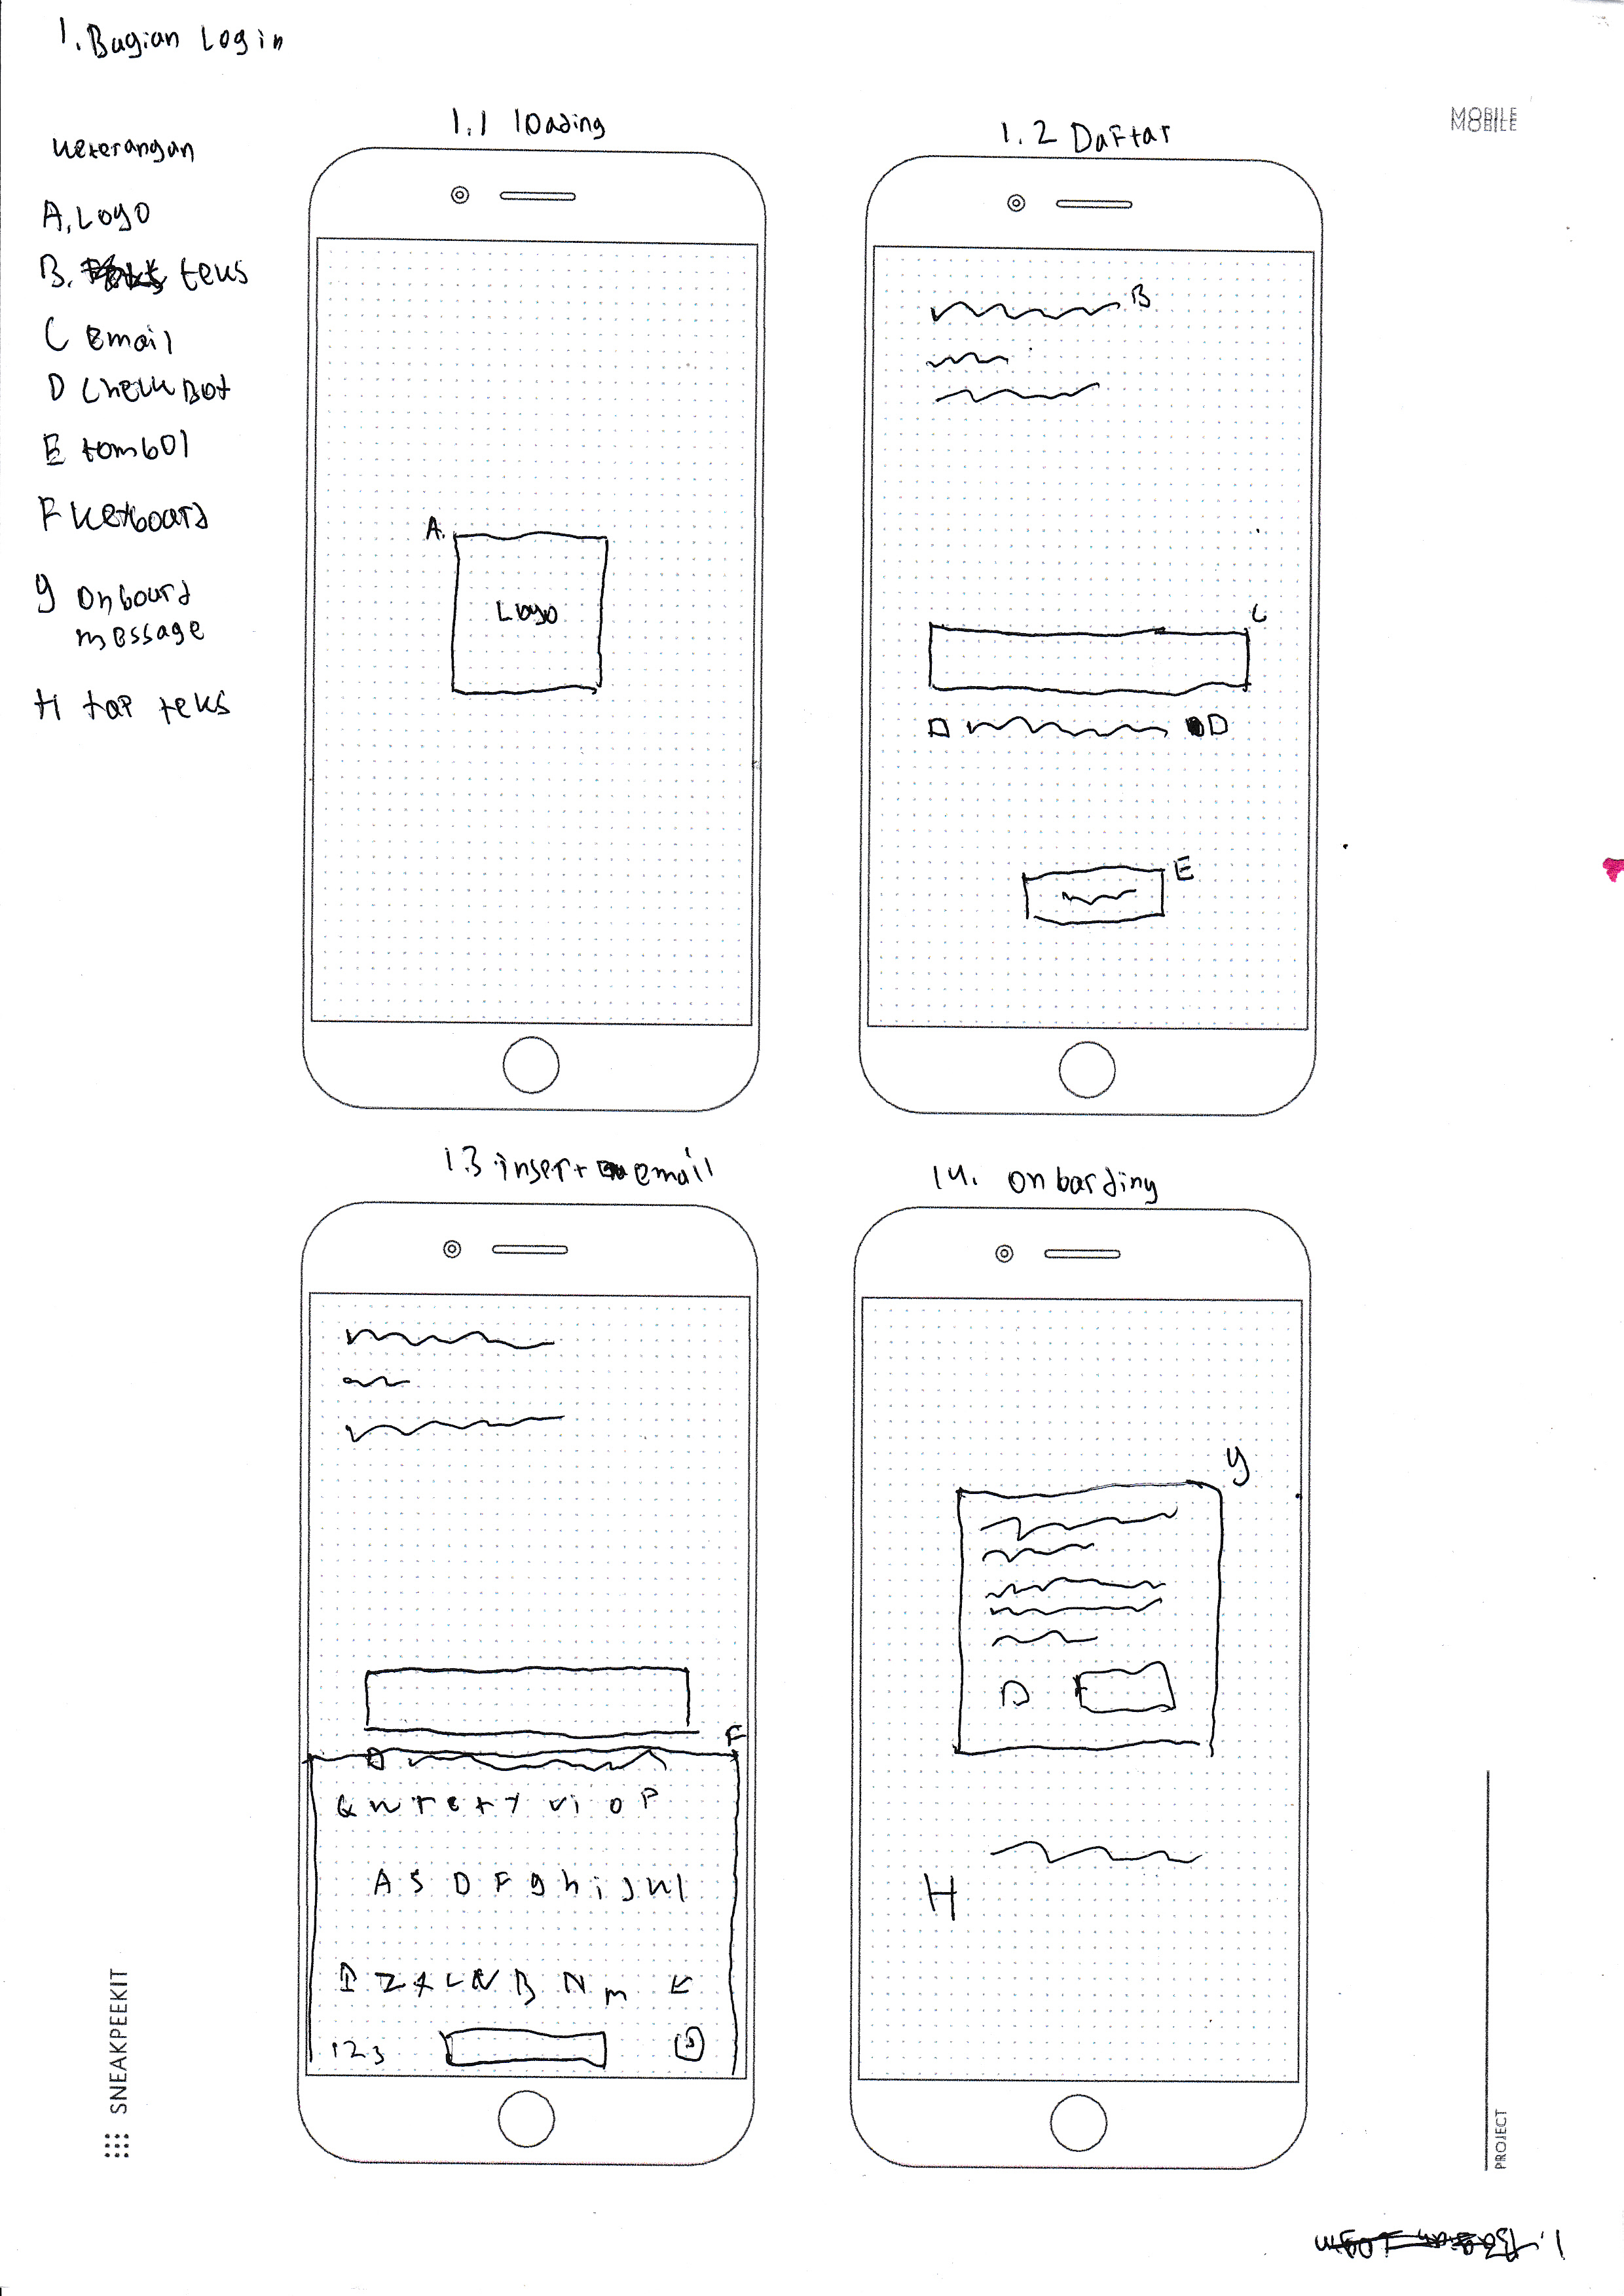 1. Bagian Login
MOBILE
MOBILE
Keterangan
A. Logo
B. teks
C email
D Check Bot
E tombol
F Keyboard
g Onboard
message
H tap teks
1.1 loading
A.
Logo
1.2 Daftar
B
C
D
E
1.3 insert email
F
Q W r e t y u i o P
A S D F g h i J k l
Z X C V B N m
123
14. onbarding
g
D
H
SNEAKPEEKIT
PROJECT